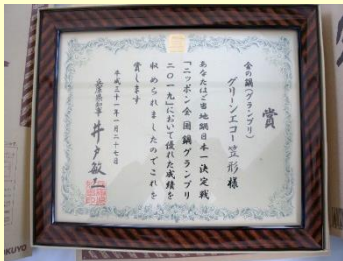 賞
金の鍋(グランプリ)
グリーンエコー笠形様
あなたはご当地鍋日本一決定戦
「ニッポン全国鍋グランプリ
二〇一九」において優れた成績を
収められましたのでこれを
賞します
平成三十一年一月二十七日
兵庫県知事 井戸敏三
KOKUYO